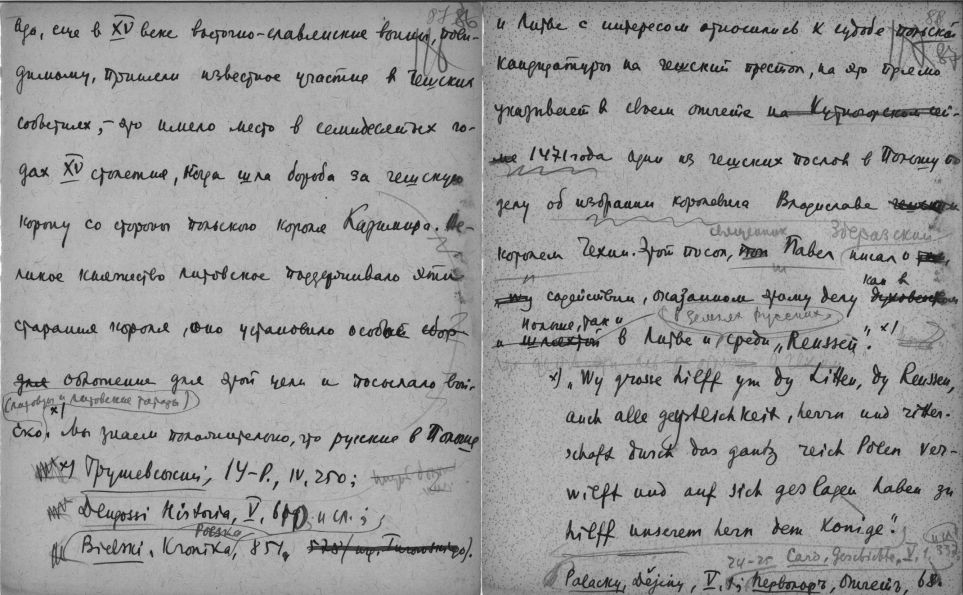 87 86
еще в XV веке восточно-славянские воины, пови-
димому, приняли известное участие в чешских
событиях, – это имело место в семидесятых го-
дах XV столетия, когда шла борьба за чешскую
корону со стороны польского короля Казимира. Ве-
ликое княжество литовское поддерживало эти
старания короля, оно установило особое сбор
для обложение для этой цели и посылало вой-
(литовцы и литовские татары)
ско. x) Мы знаем положительно, что русские в Польше
x) Грушевський, IУ-Р., IV, 250;
Dlugossi Historia, V, и сл.;
Polska
Bielski, Kronika, 851,
88 87
и Литве с интересом относились к судьбе польской
кандидатуры на чешский престол, на это прямо
указывает в своем отчете на Кутногорском сей-
ме 1471 года один из чешских послов в Польшу по
делу об избрании королевича Владислава чешским
священник Здеразский
королем Чехии. Этот посол, поп Павел писал о
как в
содействии, оказанном этому делу духовенством
Польше, так и (в землях русских)
и шляхтой в Литве и среди „Reussen". x)
x) „Wy grosse hilff ym dy Litten, dy Reussen,
auch alle geystlichkeit, herrn und ritter-
schaft durch das gantz reich Polen ver-
wilft und auf sich geslagen haben zu
hilff unserem hern dem Konige".
24-25 Caro, Geschichte, V, 1, 337
Palacky, Dějiny, V, 1; Первольф, Отчет, 68.